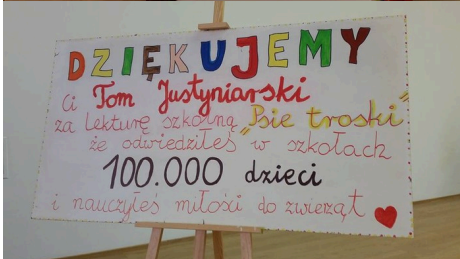 DZIĘKUJEMY
Ci Tom Justyniarski
za Lekturę szkolną „Psie troski"
że odwiedziłeś w szkołach
100.000 dzieci
i nauczyłeś miłości do zwierząt